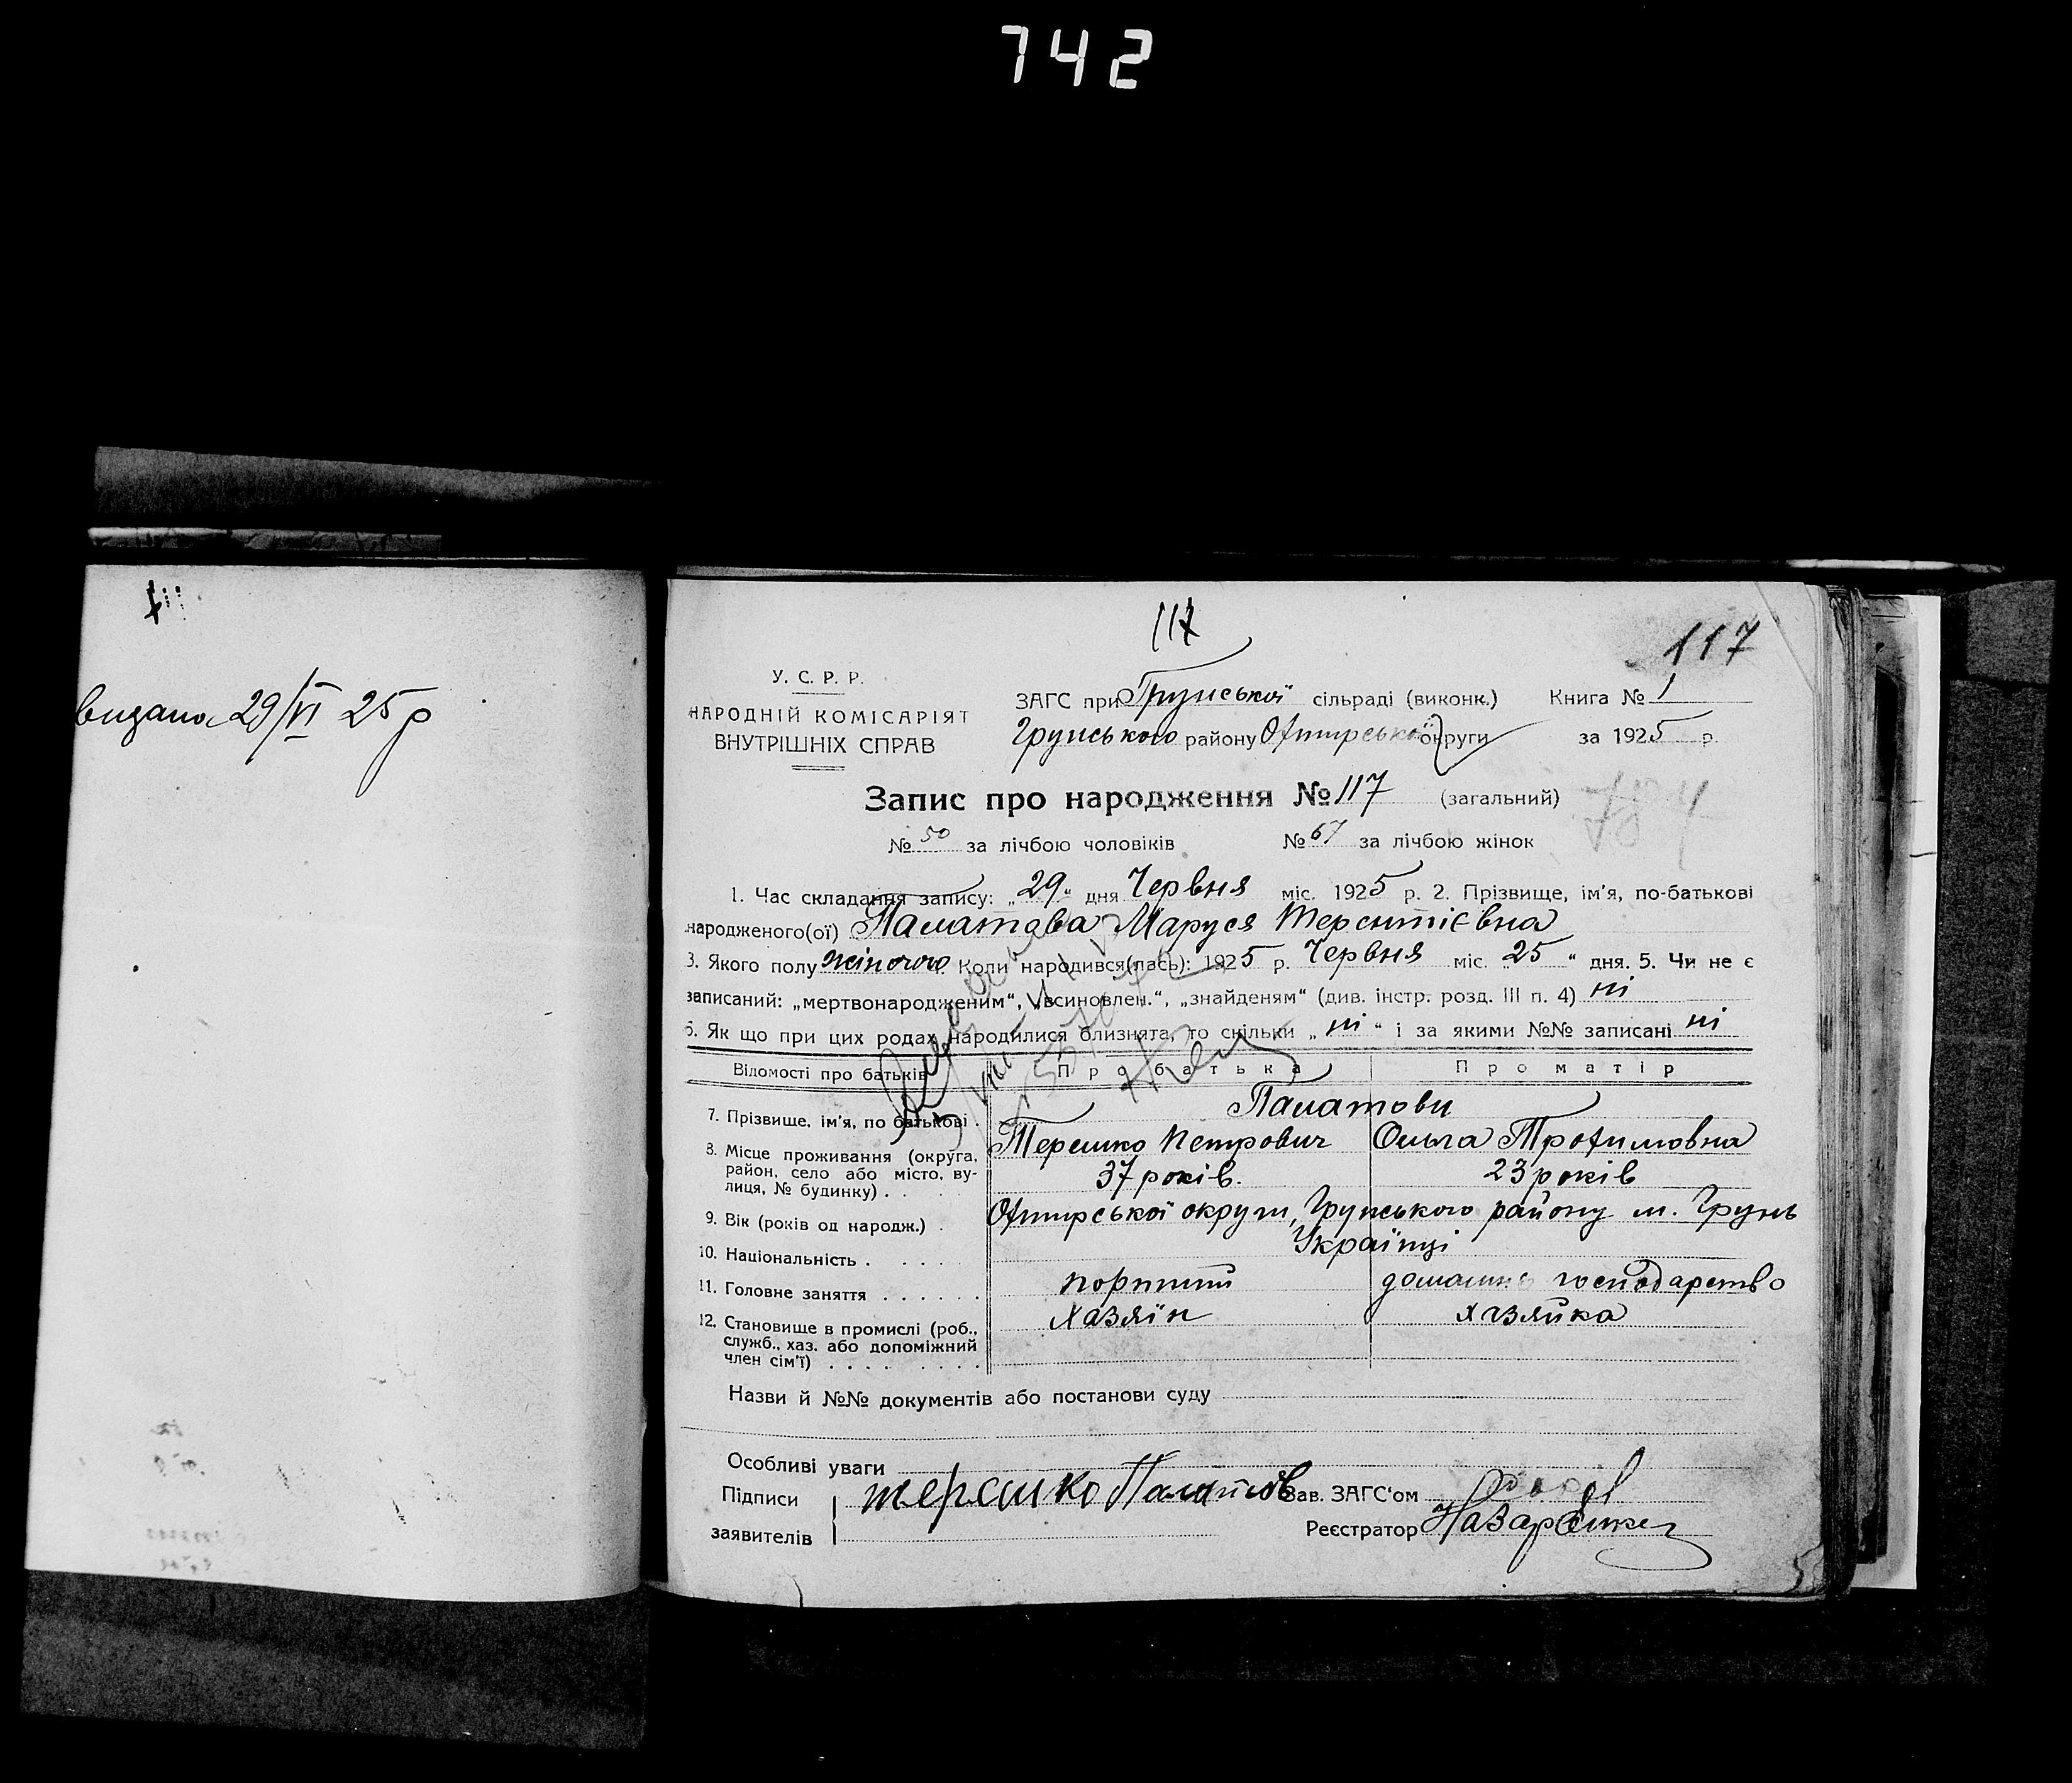 742
видано 29/VI 25 р
117
117
У. С. Р. Р.
НАРОДНІЙ КОМІСАРІЯТ
ВНУТРІШНІХ СПРАВ
ЗАГС при Грунської сільраді (виконк.) Книга № 1
Грунського району Охтирської округи за 1925 р.
Запис про народження № 117 (загальний)
№ 50 за лічбою чоловіків № 67 за лічбою жінок
1. Час складання запису: „29“ дня Червня міс. 1925 р. 2. Прізвище, ім'я, по-батькові
народженого(ої) Палатова Маруся Терентієвна
3. Якого полу жіночого Коли народився(лась): 1925 р. Червня міс. „25“ дня. 5. Чи не є
записаний: „мертвонародженим“, „всиновлен.“, „знайденям“ (див. інстр. розд. III п. 4) ні
6. Як що при цих родах народилися близнята, то скільки „ні“ і за якими №№ записані ні
Відомості про батьків Про батька Про матір
Палатови
7. Прізвище, ім'я, по батькові . Терешко Петрович Ольга Трофимовна
8. Місце проживання (округа,
район, село або місто, ву-
лиця, № будинку) . . 37 років. 23 років
9. Вік (років од народж.) . Охтирської округи, Грунського району м. Грунь
10. Національність . . . . . Українці
11. Головне заняття . . . . . . портний домашнє господарство
12. Становище в промислі (роб., хазяїн хазяйка
служб., хаз. або допоміжний
член сім'ї) . . . . . . . .
Назви й №№ документів або постанови суду
Особливі уваги
Підписи Терешко Палатов Зав. ЗАГС'ом
заявителів Реєстратор Назаренко